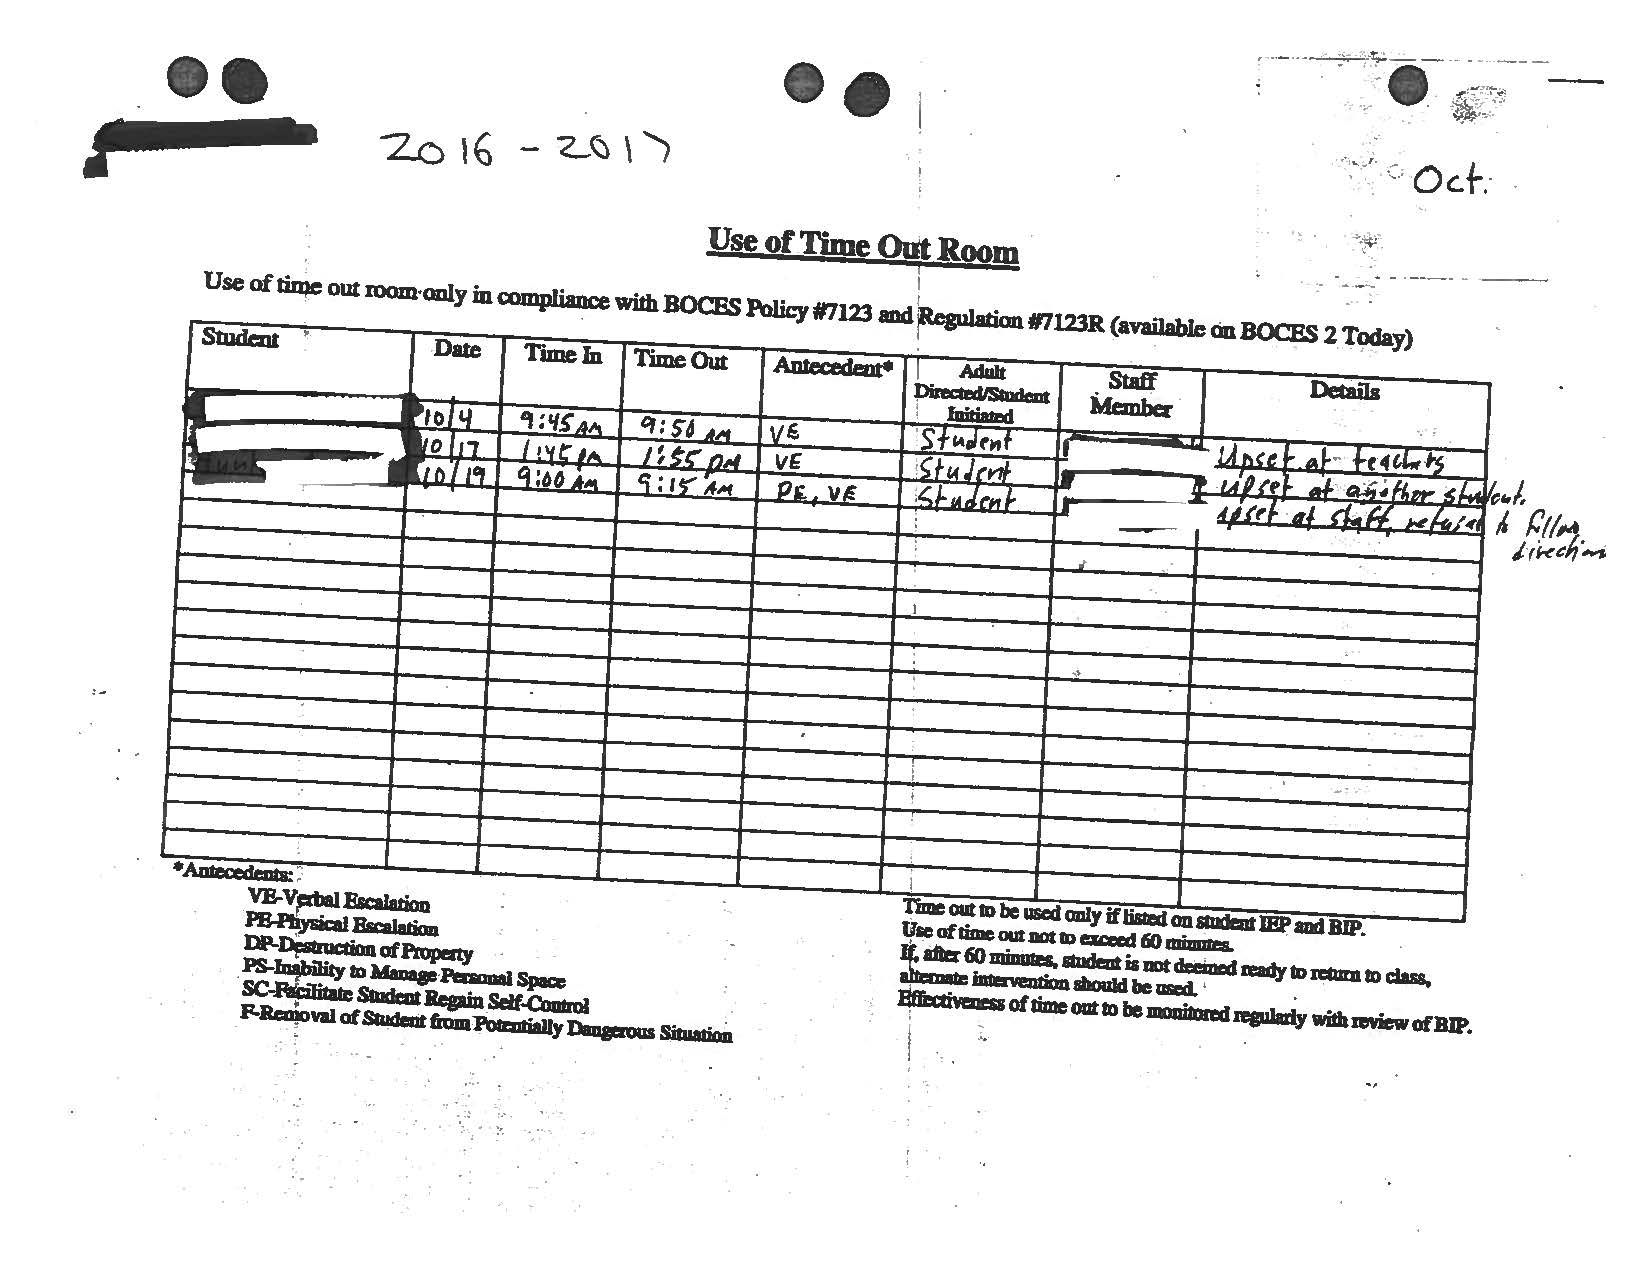 2016 - 2017
Oct.
Use of Time Out Room
Use of time out room only in compliance with BOCES Policy #7123 and Regulation #7123R (available on BOCES 2 Today)
Student Date Time In Time Out Antecedent* Adult Directed/Student Initiated Staff Member Details
10/4 9:45 AM 9:50 AM VE Student Upset at teachers
10/17 1:45 PM 1:55 PM VE Student upset at another student.
10/19 9:00 AM 9:15 AM PE, VE Student upset at staff, refusal to follow
direction
*Antecedents:
VE-Verbal Escalation
PE-Physical Escalation
DP-Destruction of Property
PS-Inability to Manage Personal Space
SC-Facilitate Student Regain Self-Control
F-Removal of Student from Potentially Dangerous Situation
Time out to be used only if listed on student IEP and BIP.
Use of time out not to exceed 60 minutes.
If, after 60 minutes, student is not deemed ready to return to class,
alternate intervention should be used.
Effectiveness of time out to be monitored regularly with review of BIP.